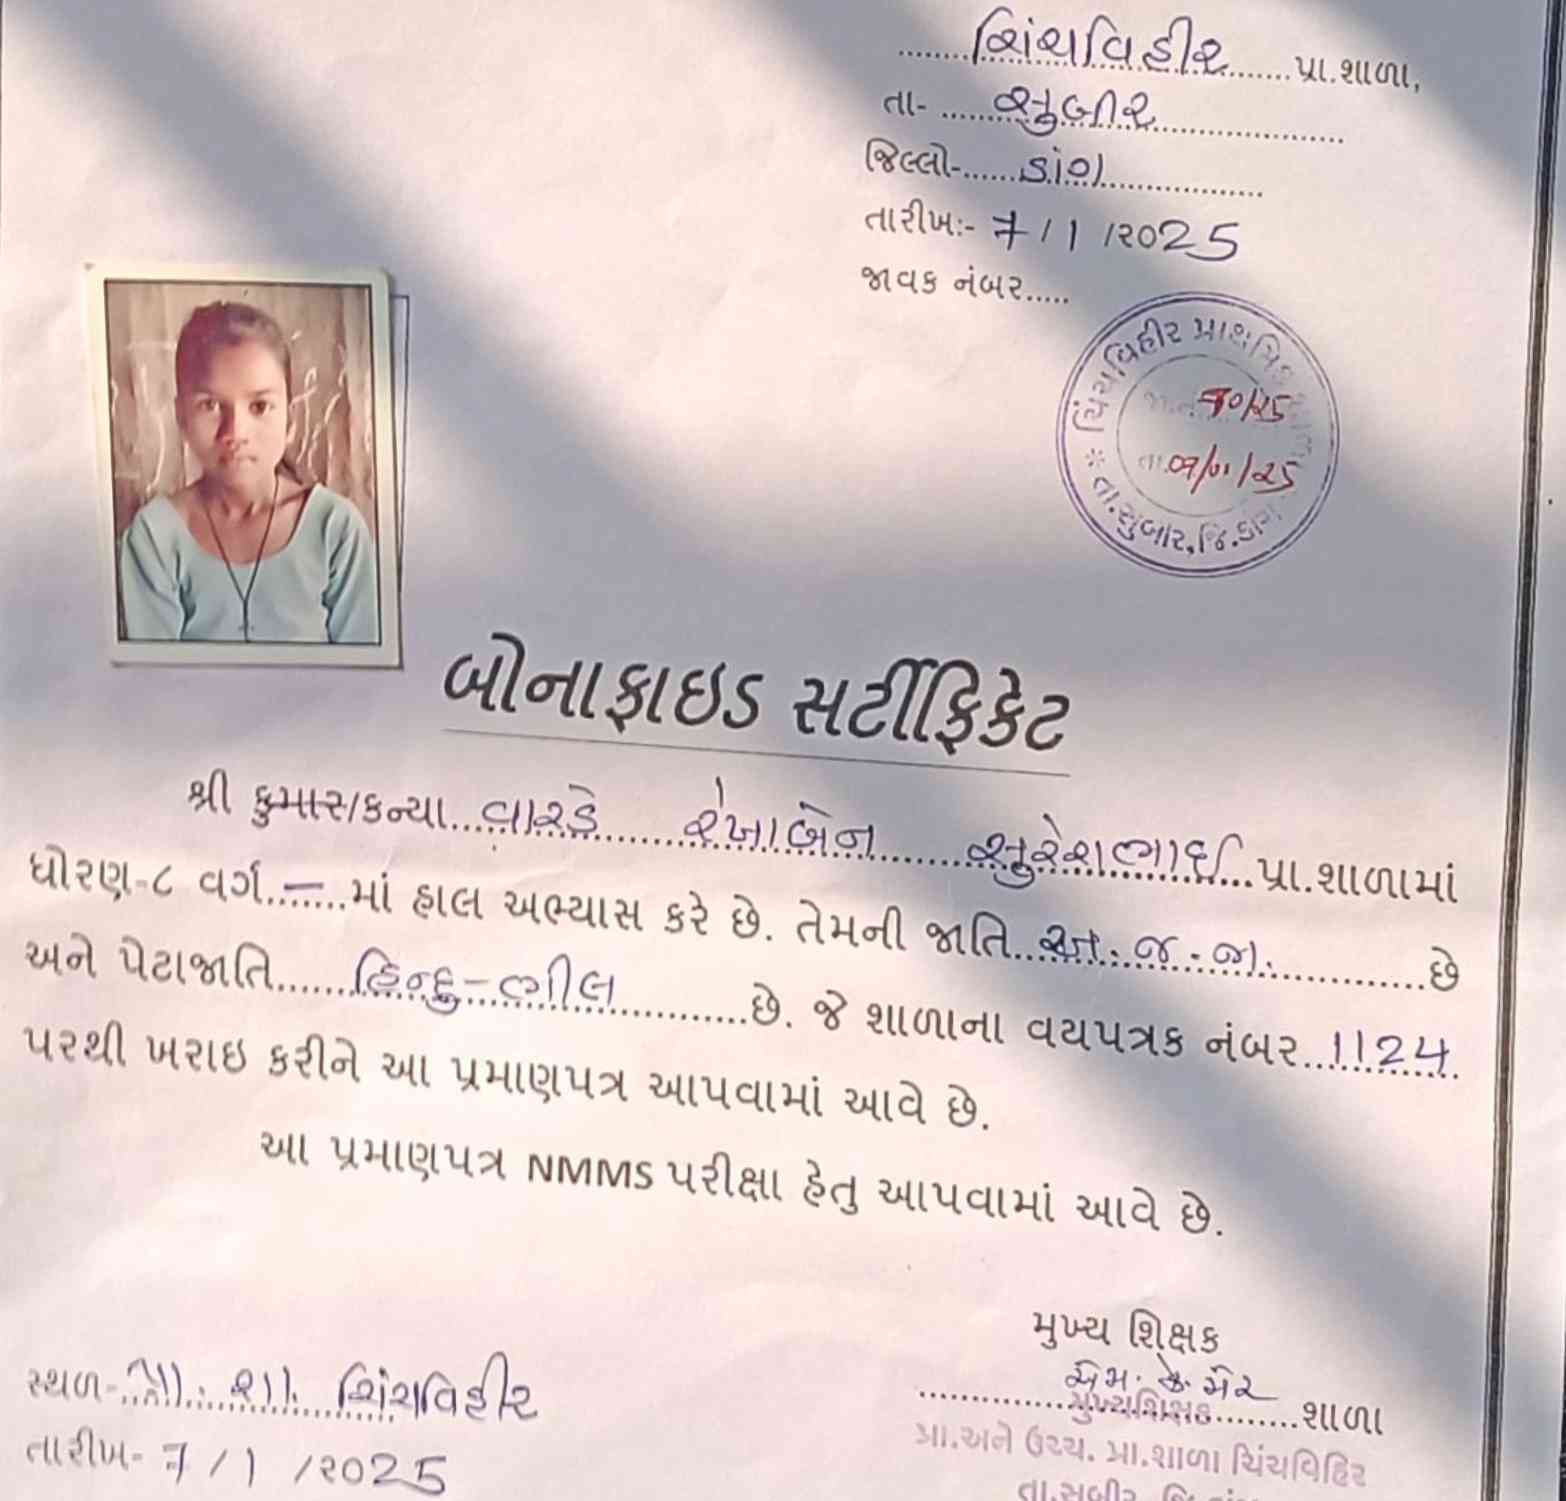 ચિંચવિહીર પ્રા.શાળા,
તા- સુબીર
જિલ્લો- ડાંગ
તારીખ:- 7/1/2025
જાવક નંબર.....
ચિંચવિહીર પ્રાથમિક
જા.નં. 70/25
તા.07/01/25
તા.સુબીર,જિ.ડાંગ
બોનાફાઇડ સર્ટીફિકેટ
શ્રી કુમાર/કન્યા વારડે રેખાબેન સુરેશભાઈ પ્રા.શાળામાં
ધોરણ-૮ વર્ગ — માં હાલ અભ્યાસ કરે છે. તેમની જાતિ અ.જ.જા. છે
અને પેટાજાતિ હિન્દુ-ભીલ છે. જે શાળાના વયપત્રક નંબર 1124
પરથી ખરાઇ કરીને આ પ્રમાણપત્ર આપવામાં આવે છે.
આ પ્રમાણપત્ર NMMS પરીક્ષા હેતુ આપવામાં આવે છે.
મુખ્ય શિક્ષક
એમ. કે. મેર
મુખ્યશિક્ષક શાળા
પ્રા.અને ઉચ્ચ. પ્રા.શાળા ચિંચવિહિર
સ્થળ- પ્રા. શા. ચિંચવિહીર
તારીખ- 7/1/2025